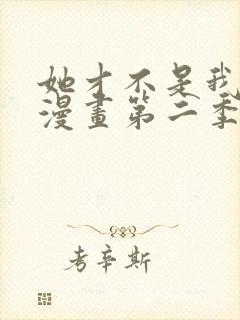 她才不是我
漫畫第二季
考辛斯